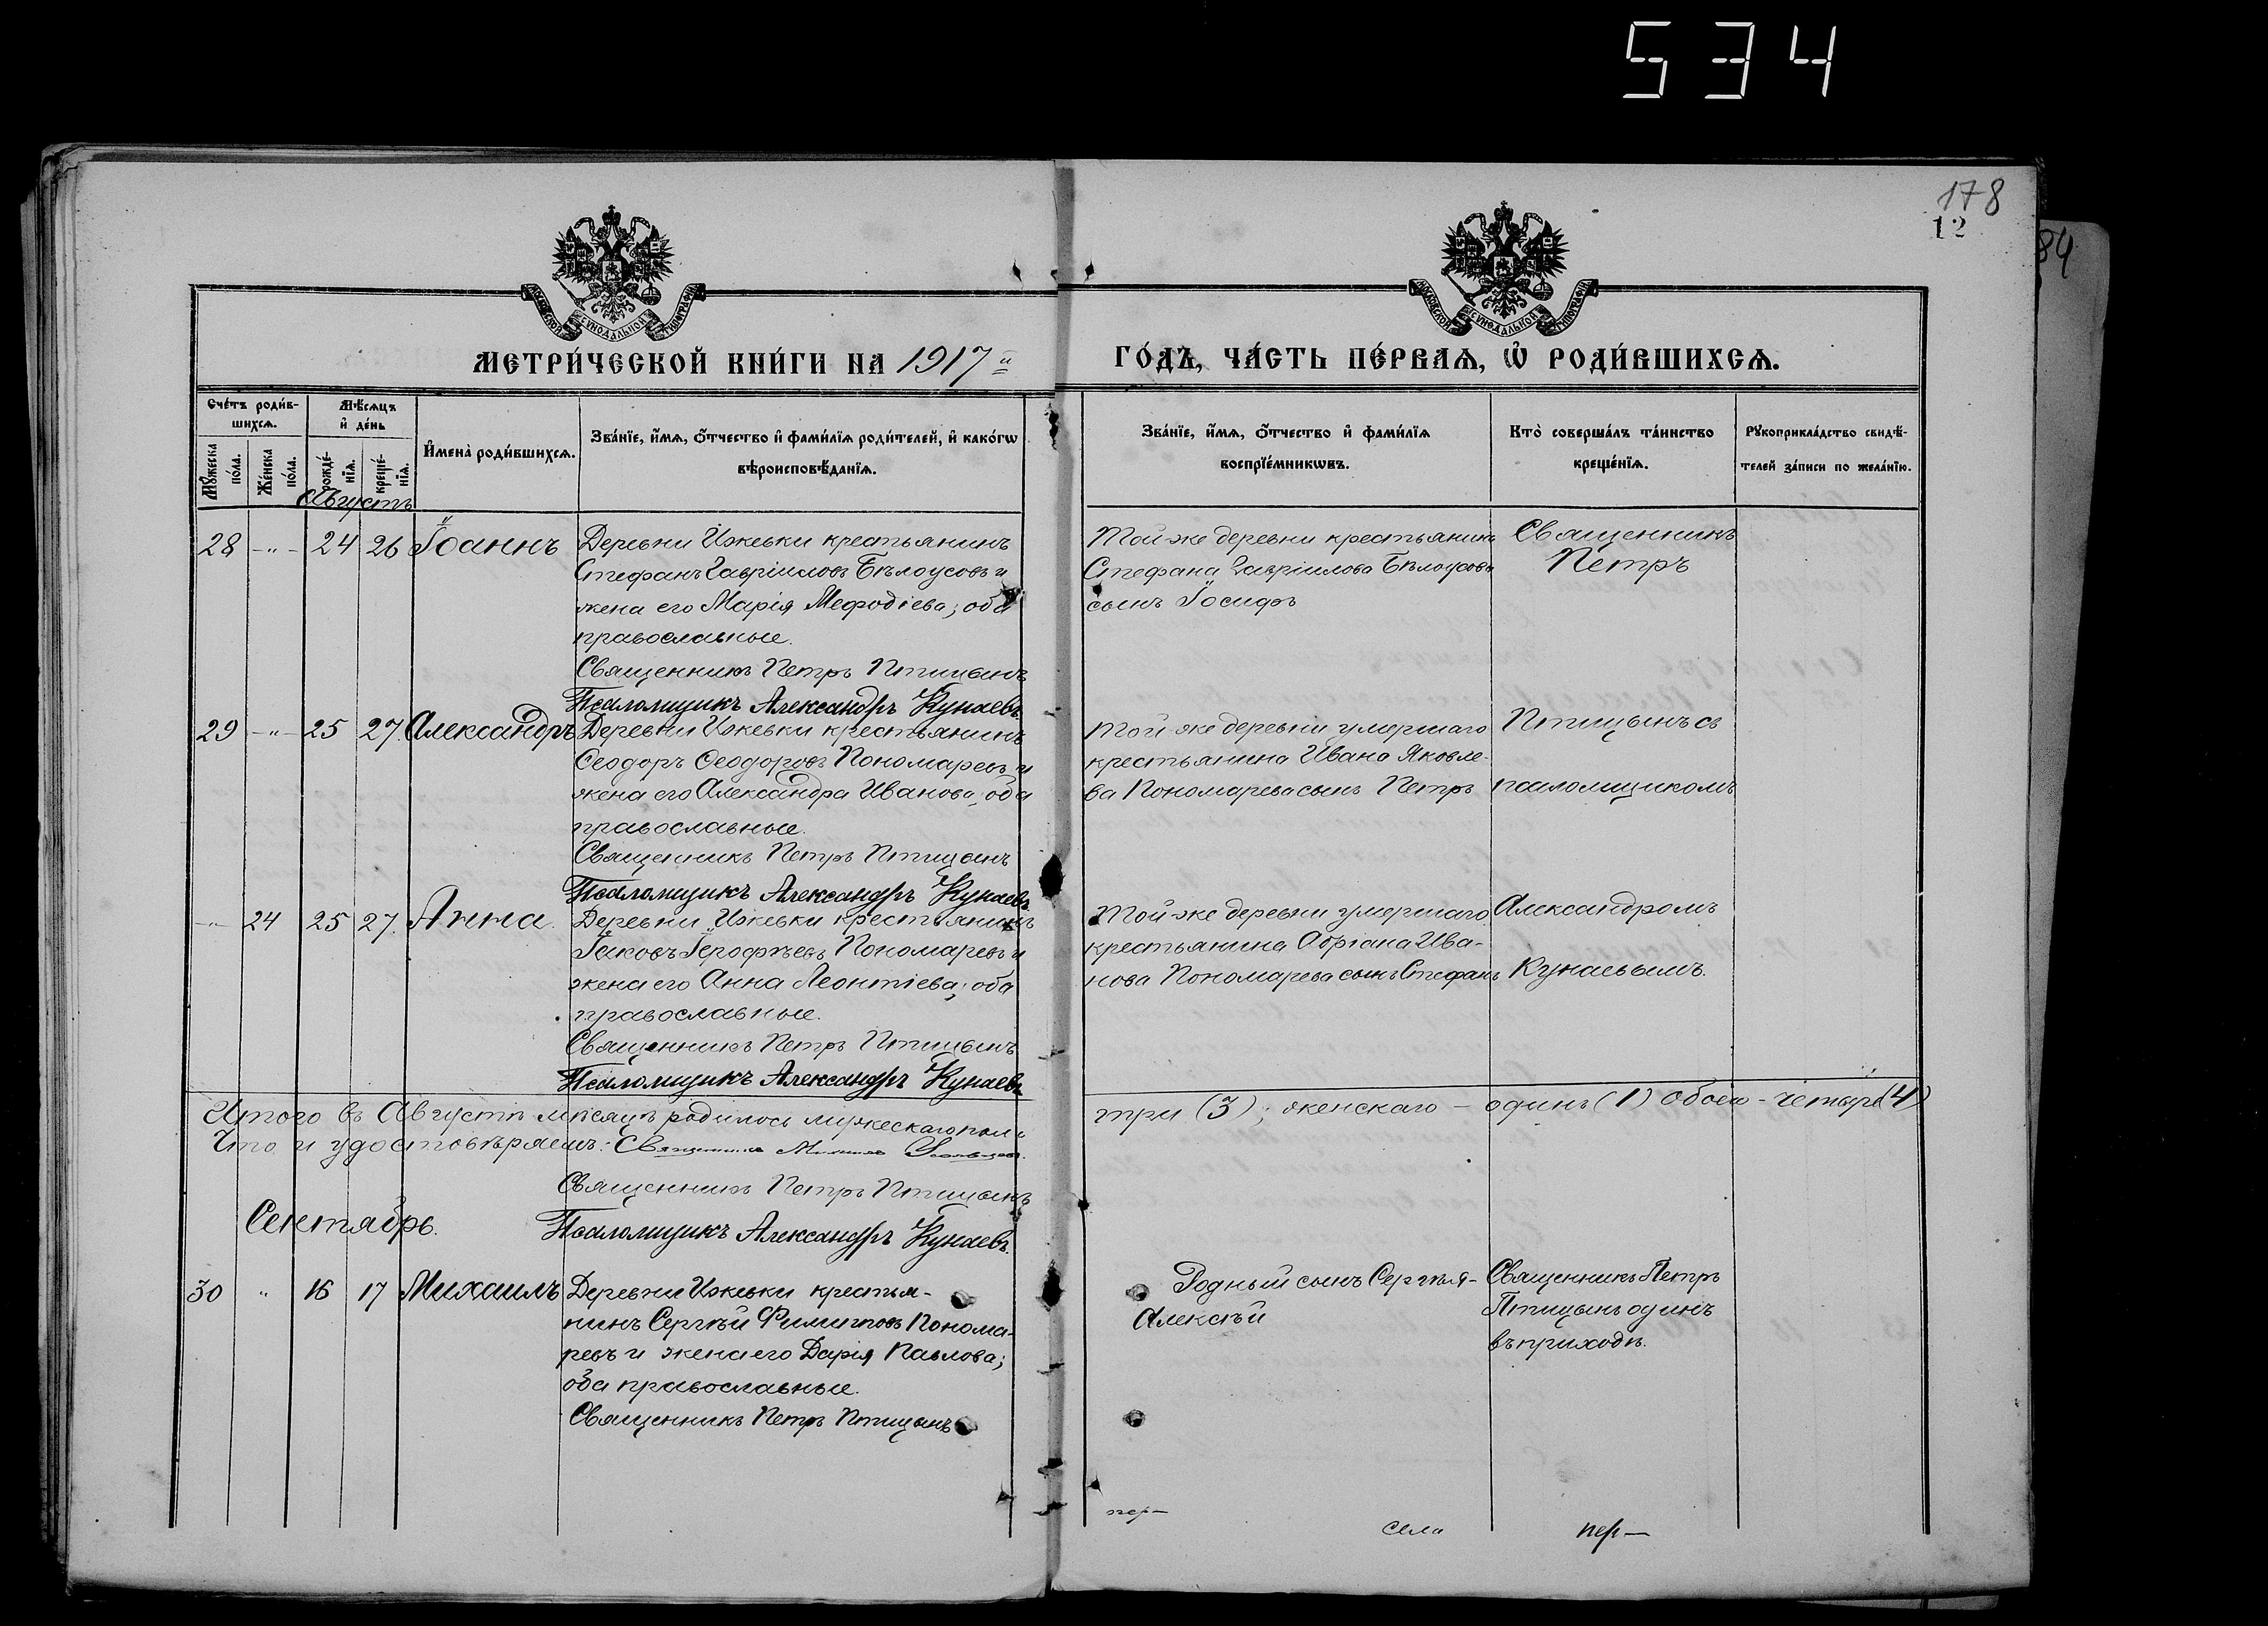 534
178
12
84
МОСКОВСКОЙ СѴНОДАЛЬНОЙ ТИПОГРАФІИ
МОСКОВСКОЙ СѴНОДАЛЬНОЙ ТИПОГРАФІИ
МЕТРИ́ЧЕСКОЙ КНИ́ГИ НА 1917 й
ГО́ДЪ, ЧА́СТЬ ПЕ́РВАѦ, Ѽ РОДИ́ВШИХСѦ.
Сче́тъ роди́в-
шихсѧ.
Мѣ́сѧцъ
и҆ де́нь
Мꙋ́жеска
по́ла.
Же́нска
по́ла.
рожде́-
нїѧ.
креще́-
нїѧ.
И҆мена̀ роди́вшихсѧ.
Зва́нїе, и҆́мѧ, ѻ҆́тчество и҆ фами́лїѧ роди́телей, и҆ како́гѡ
вѣроисповѣ́данїѧ.
Зва́нїе, и҆́мѧ, ѻ҆́тчество и҆ фами́лїѧ
воспрїе́мникѡвъ.
Кто̀ соверша́лъ та́инство
креще́нїѧ.
Рꙋкоприкла́дство свидѣ́-
телей за́писи по жела́нїю.
Августъ
28 -"- 24 26 Іоаннъ
Деревни Ижевки крестьянинъ
Стефанъ Гавріиловъ Бѣлоусовъ и
жена его Марія Мефодіева; оба
православные.
Священникъ Петръ Птицынъ
Псаломщикъ Александръ Кунаевъ
Той же деревни крестьянина
Стефана Гавріилова Бѣлоусова
сынъ Іосифъ
Священникъ
Петръ
29 -"- 25 27. Александръ
Деревни Ижевки крестьянинъ
Ѳеодоръ Ѳеодоровъ Пономаревъ и
жена его Александра Иванова, оба
православные.
Священникъ Петръ Птицынъ
Псаломщикъ Александръ Кунаевъ
Той же деревни умершаго
крестьянина Ивана Яковле-
ва Пономарева сынъ Петръ
Птицынъ съ
псаломщикомъ
-"- 24 25 27. Анна.
Деревни Ижевки крестьянинъ
Іаковъ Іерофѣевъ Пономаревъ и
жена его Анна Леонтіева; оба
православные.
Священникъ Петръ Птицынъ
Псаломщикъ Александръ Кунаевъ
Той же деревни умершаго
крестьянина Адріана Ива-
нова Пономарева сынъ Стефанъ
Александромъ
Кунаевымъ.
Итого въ Августѣ мѣсяцѣ родилось мужескаго пола
три (3); женскаго - одинъ (1) обоего - четыре (4)
Что и удостовѣряемъ: Священникъ
Священникъ Петръ Птицынъ
Псаломщикъ Александръ Кунаевъ.
Сентябрь.
30 " 16 17 Михаилъ
Деревни Ижевки крестья-
нинъ Сергѣй Филипповъ Понома-
ревъ и жена его Дарія Павлова;
оба православные.
Священникъ Петръ Птицынъ
Родный сынъ Сергѣя-
Алексѣй
Священникъ Петръ
Птицынъ одинъ
въ приходѣ.
пер-
села
пер-